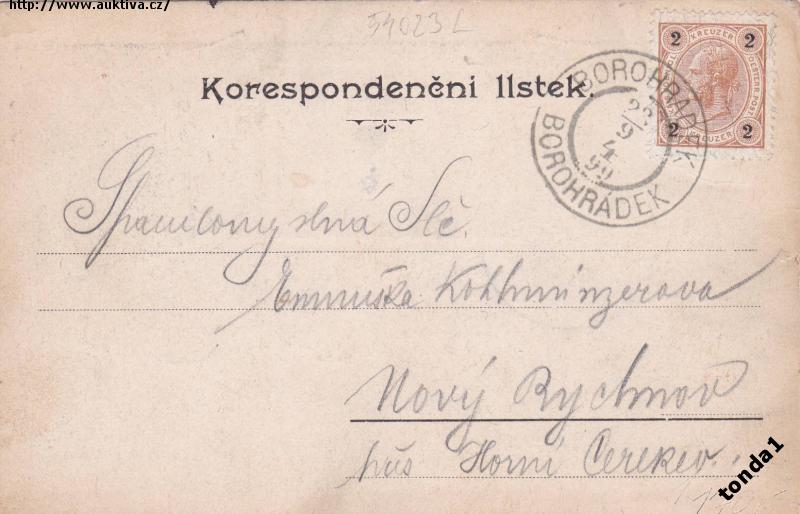 http://www.auktiva.cz/
54023 L
Korespondenční lístek.
2 KREUZER 2
2 KREUZER 2
BOROHRADEK
23/9
4
99
BOROHRÁDEK
Spanilomyslná Slč.
Emmuška Kohhminzerova
Nový Rychnov
Horní Cerekev.
tonda1